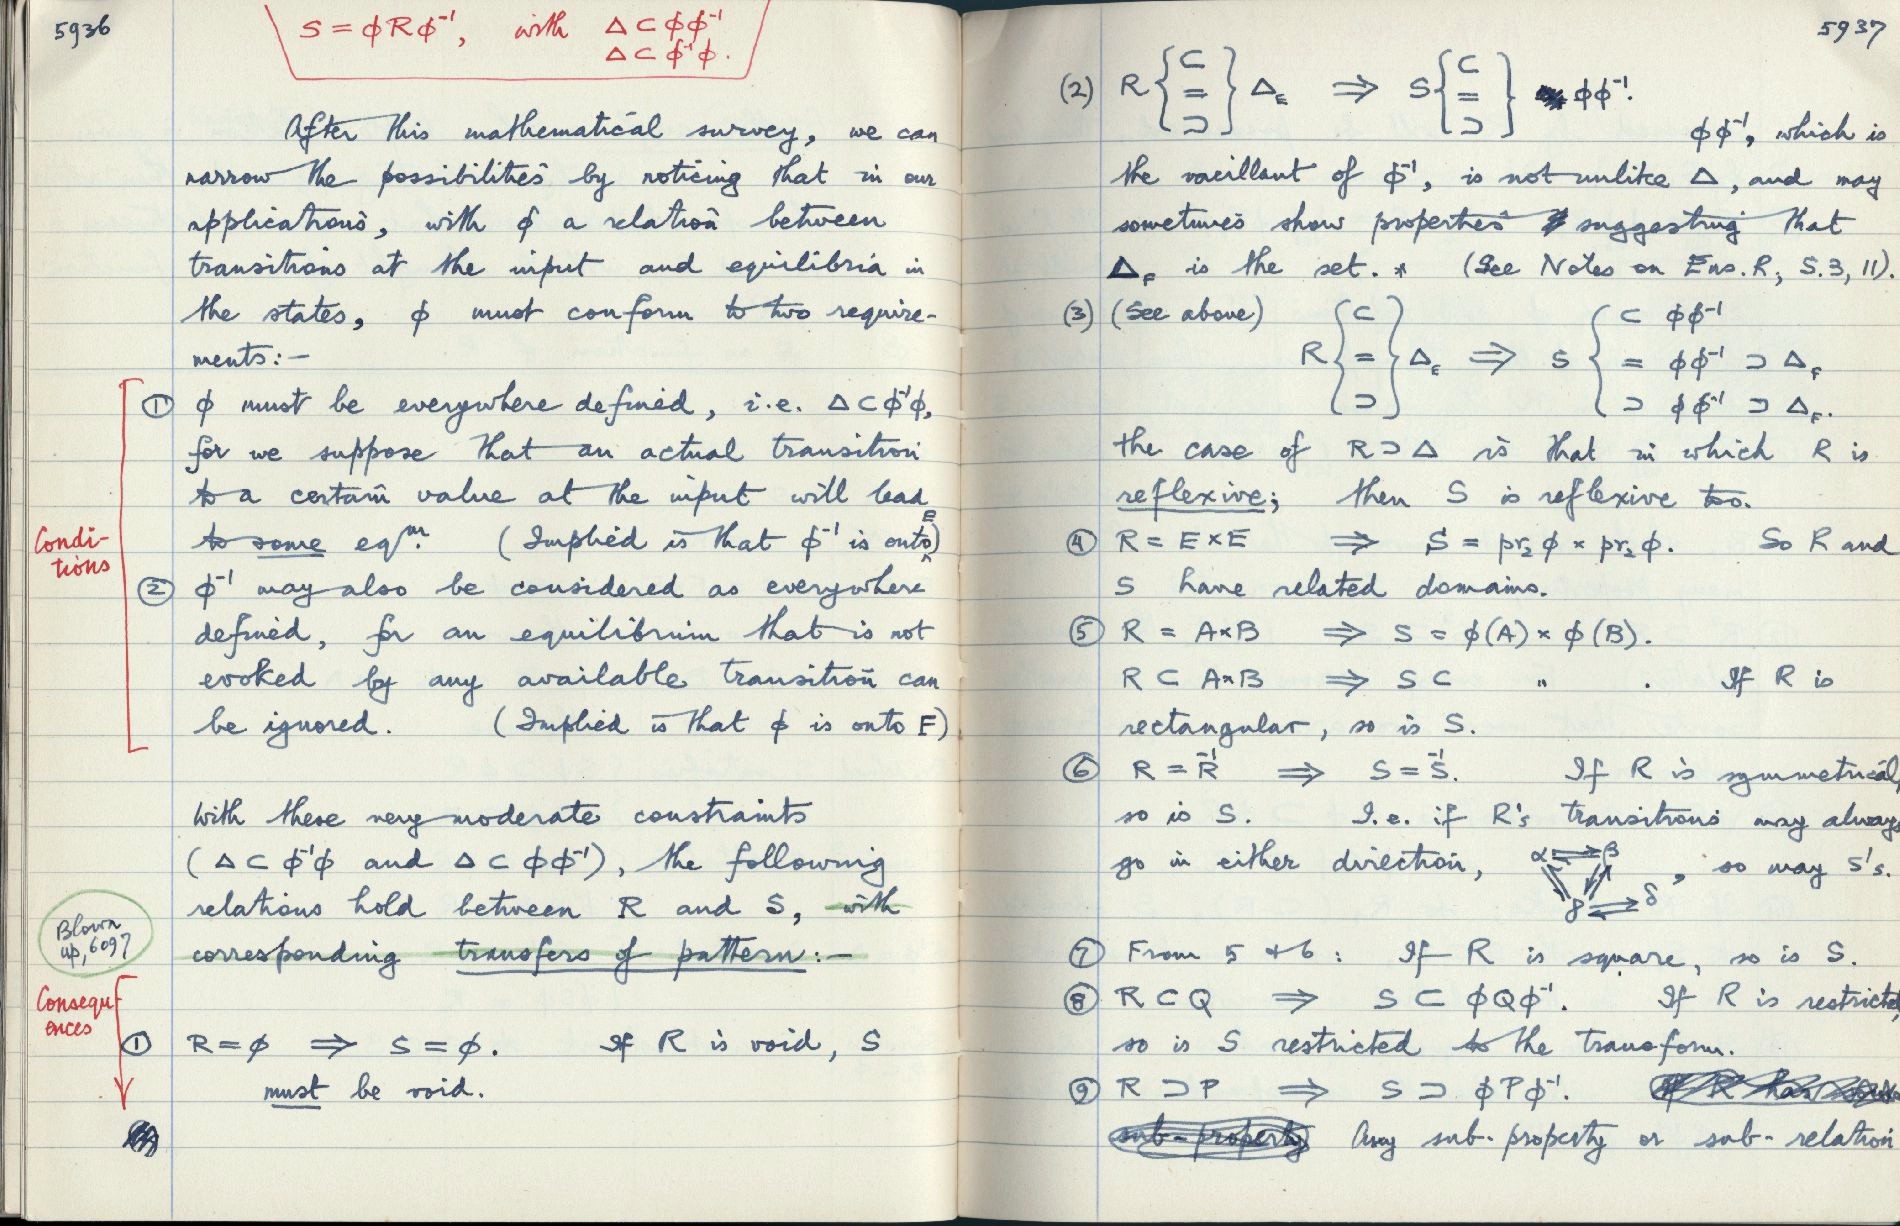 5936
S = ϕRϕ⁻¹, with Δ ⊂ ϕϕ⁻¹
Δ ⊂ ϕ⁻¹ϕ.
After this mathematical survey, we can
narrow the possibilities by noticing that in our
applications, with ϕ a relation between
transitions at the input and equilibria in
the states, ϕ must conform to two require-
ments:-
Condi-
tions
① ϕ must be everywhere defined, i.e. Δ ⊂ ϕ⁻¹ϕ,
for we suppose that an actual transition
to a certain value at the input will lead
to some eqm. (Implied is that ϕ⁻¹ is onto E)
② ϕ⁻¹ may also be considered as everywhere
defined, for an equilibrium that is not
evoked by any available transition can
be ignored. (Implied is that ϕ is onto F)
With these very moderate constraints
(Δ ⊂ ϕ⁻¹ϕ and Δ ⊂ ϕϕ⁻¹), the following
relations hold between R and S, with
corresponding transfers of pattern:-
Blown
up, 6097
Consequ-
ences
① R = ∅ ⇒ S = ∅. If R is void, S
must be void.
5937
(2) R { ⊂ = ⊃ } Δ_E ⇒ S { ⊂ = ⊃ } ϕϕ⁻¹.
ϕϕ⁻¹, which is
the vacillant of ϕ⁻¹, is not unlike Δ, and may
sometimes show properties suggesting that
Δ_F is the set. * (See Notes on Ens. R, S.3, 11).
(3) (See above) R { ⊂ = ⊃ } Δ_E ⇒ S { ⊂ ϕϕ⁻¹
= ϕϕ⁻¹ ⊃ Δ_F
⊃ ϕϕ⁻¹ ⊃ Δ_F.
The case of R ⊃ Δ is that in which R is
reflexive; then S is reflexive too.
④ R = E×E ⇒ S = pr₂ϕ × pr₂ϕ. So R and
S have related domains.
⑤ R = A×B ⇒ S = ϕ(A) × ϕ(B).
R ⊂ A×B ⇒ S ⊂ " . If R is
rectangular, so is S.
⑥ R = R⁻¹ ⇒ S = S⁻¹. If R is symmetrical,
so is S. I.e. if R's transitions may always
go in either direction, α β γ δ , so may S's.
⑦ From 5 & 6: If R is square, so is S.
⑧ R ⊂ Q ⇒ S ⊂ ϕQϕ⁻¹. If R is restricted,
so is S restricted to the transform.
⑨ R ⊃ P ⇒ S ⊃ ϕPϕ⁻¹. If R has
sub-property Any sub-property or sub-relation